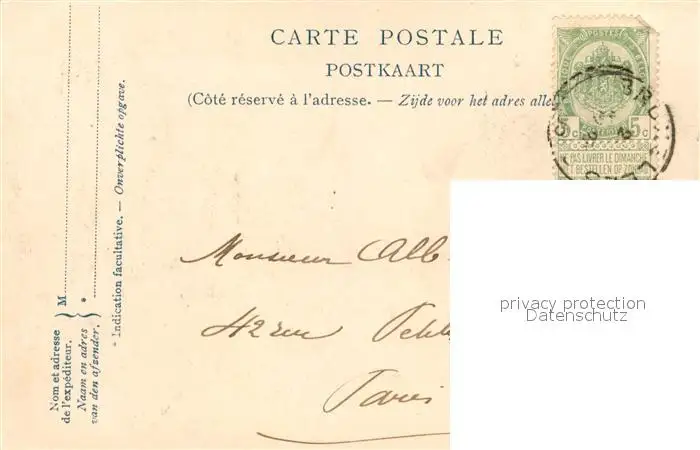 CARTE POSTALE
POSTKAART
(Côté réservé à l'adresse. — Zijde voor het adres alle
POSTES
5c 5c
NE PAS LIVRER LE DIMANCHE
T BESTELLEN OP ZON
Monsieur Alb
42 rue
Paris
Nom et adresse
de l'expéditeur.
Naam en adres
van den afzender.
M
*
* Indication facultative. — Onverplichte opgave.
privacy protection
Datenschutz